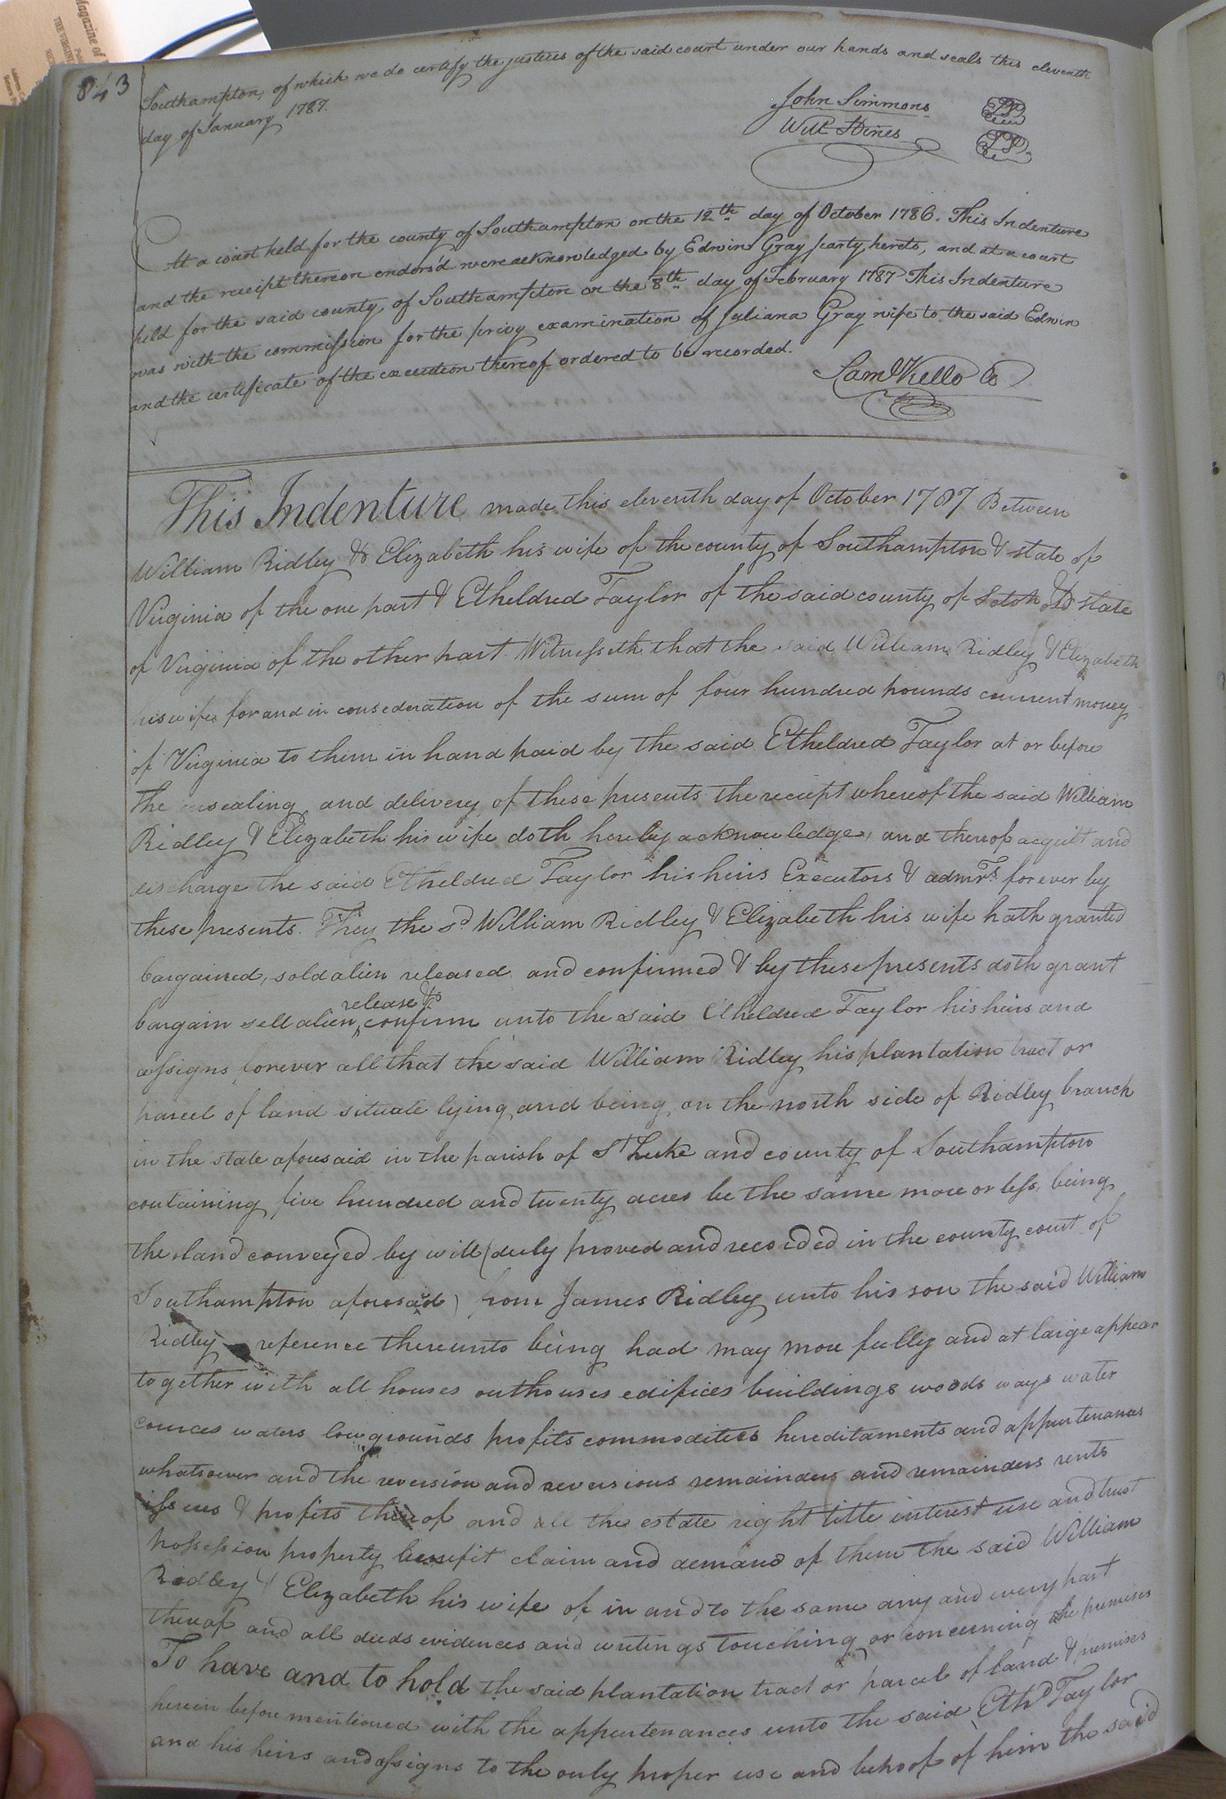 Magazine of
THE VIRGIN
843
Southampton, of which we do certify the justices of the said court under our hands and seals this eleventh
day of January 1787.
John Simmons
Will Hines
At a court held for the county of Southampton on the 12th day of October 1786. This Indenture
and the receipt thereon endors'd were acknowledged by Edwin Gray party hereto, and at a court
held for the said county of Southampton on the 8th day of February 1787 This Indenture
was with the commission for the privy examination of Juliana Gray wife to the said Edwin
and the certificate of the execution thereof ordered to be recorded.
Saml Kello Cl
This Indenture made this eleventh day of October 1787 Between
William Ridley & Elizabeth his wife of the county of Southampton & state of
Virginia of the one part & Etheldred Taylor of the said county of & state
of Virginia of the other part Witnesseth that the said William Ridley & Elizabeth
his wife for and in consederation of the sum of four hundred pounds current money
of Virginia to them in hand paid by the said Etheldred Taylor at or before
the ensealing and delivery of these presents the reciept whereof the said William
Ridley & Elizabeth his wife doth hereby acknowledge, and thereof acquit and
discharge the said Etheldred Taylor his heirs Executors & admrs. forever by
these presents. They the sd William Ridley & Elizabeth his wife hath granted
bargained, sold alien released and confirmed & by these presents doth grant
release &
bargain sell alien confirm unto the said Etheldred Taylor his heirs and
assigns forever all that the said William Ridley his plantation tract or
parcel of land situate lying and being on the north side of Ridley branch
in the state aforesaid in the parish of St Luke and county of Southampton
containing five hundred and twenty acres be the same more or less, being
the land conveyed by will (duly proved and recorded in the county court of
Southampton aforesaid) from James Ridley unto his son the said William
Ridley reference thereunto being had may more fully and at large appear
together with all houses outhouses edifices buildings woods ways water
cources waters lowgrounds profits commodities hereditaments and appurtenances
whatsoever and the reversion and reversions remainders and remainders rents
issues & profits thereof and all the estate right title interest use and trust
possession property benefit claim and demand of them the said William
Ridley & Elizabeth his wife of in and to the same any and every part
thereof and all deeds evidences and writings touching or concerning the premises
To have and to hold the said plantation tract or parcel of land & premises
herein before mentioned with the appurtenances unto the said Ethd Taylor
and his heirs and assigns to the only proper use and behoof of him the said